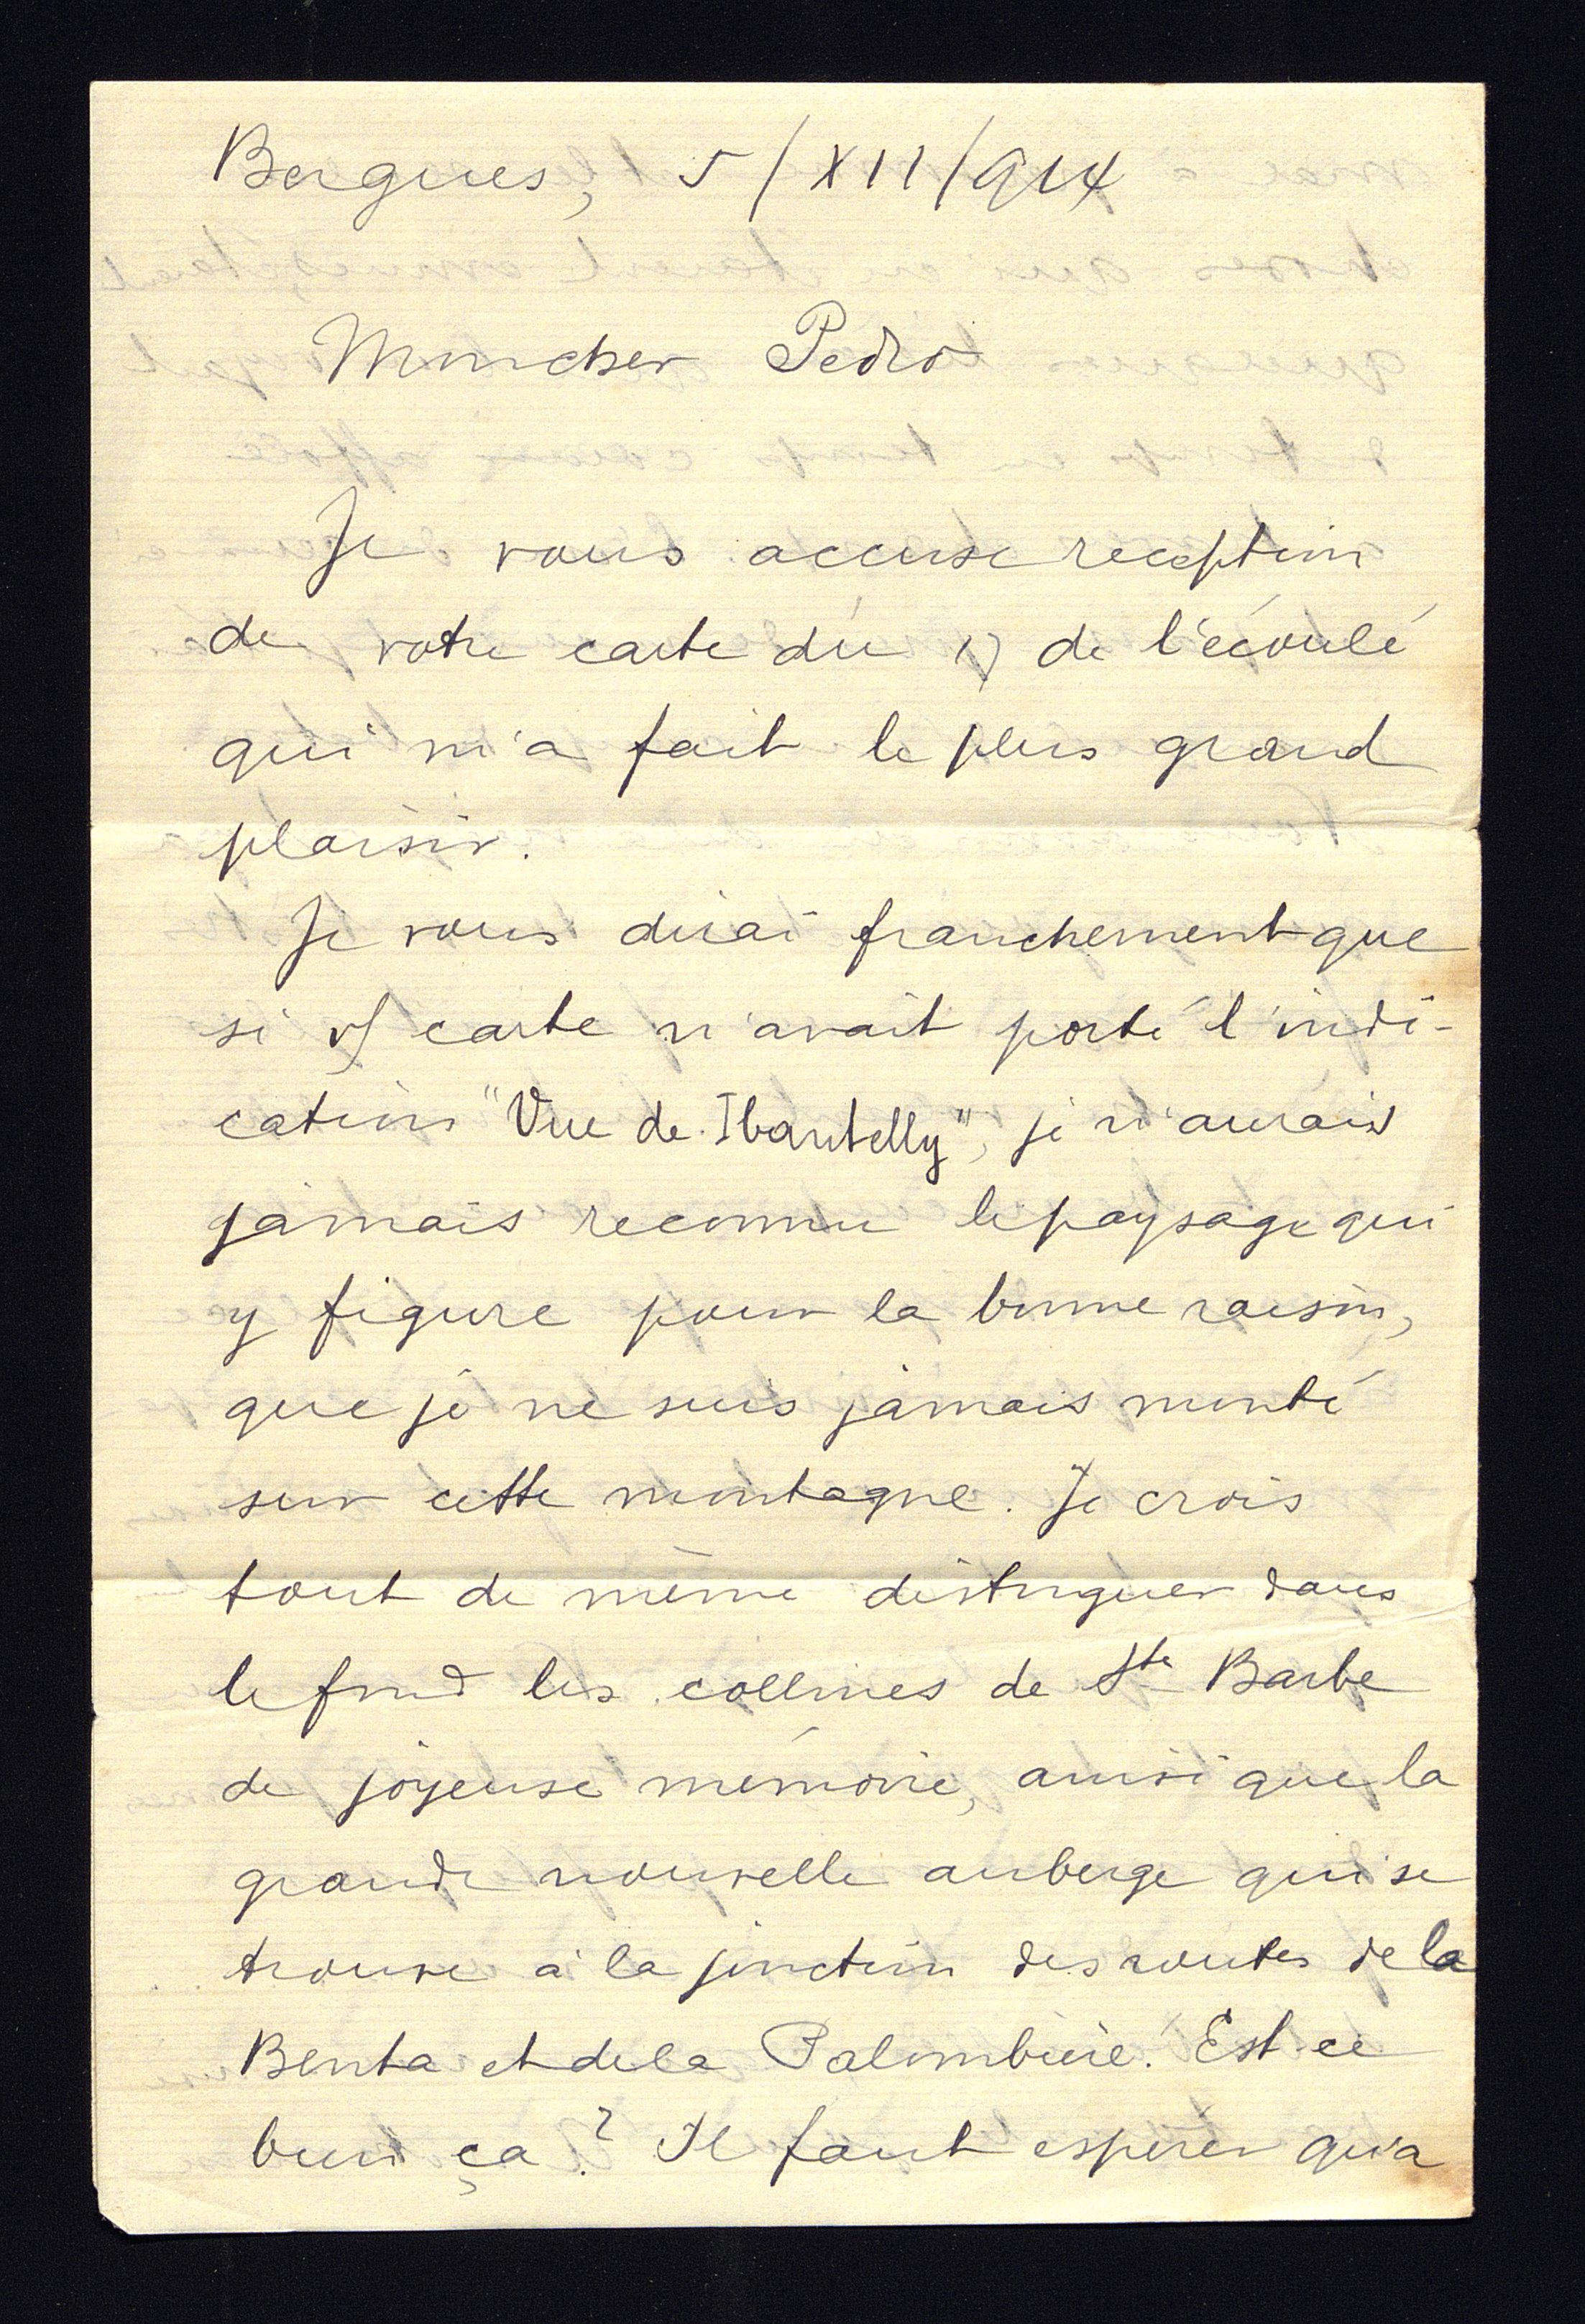 Bergues, 5/XII/914
Mon cher Pedro
Je vous accuse reception
de votre carte du 17 de l'écoulé
qui m'a fait le plus grand
plaisir.
Je vous dirai franchement que
si v/ carte n'avait porté l'indi-
cation "Vue de Ibantelly", je n'aurais
jamais reconnu le paysage qui
y figure pour la bonne raison,
que je ne suis jamais monté
sur cette montagne. Je crois
tout de même distinguer dans
le fond les collines de Ste Barbe
de joyeuse mémoire, ainsi que la
grande nouvelle auberge qui se
trouve à la jonction des routes de la
Benta et de la Palombière. Est-ce
bien ça? Il faut espérer qu'a